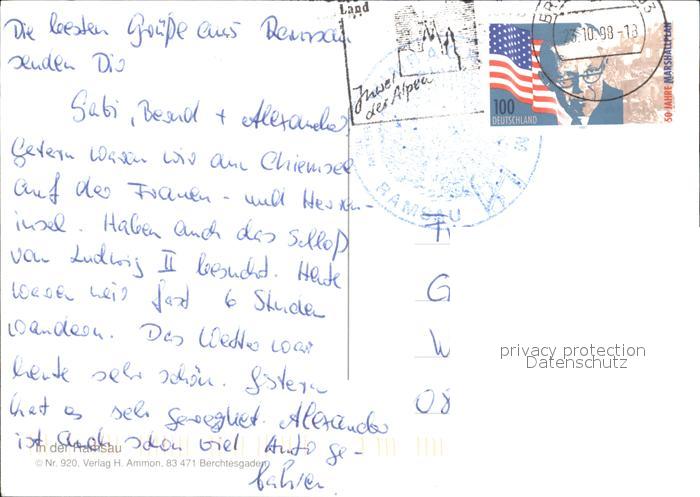 Die besten Grüße aus Ramsau
senden Dir
Gabi, Bernd + Alexander.
Gestern waren wir am Chiemsee
auf der Frauen- und Herren-
insel. Haben auch das Schloß
von Ludwig II besucht. Heute
waren wir fast 6 Stunden
wandern. Das Wetter war
heute sehr schön. Gestern
hat es sehr geregnet. Alexander
ist auch schon viel Auto ge-
fahren.
In der Ramsau
© Nr. 920, Verlag H. Ammon, 83 471 Berchtesgaden
Land
Juwel
der Alpen
23.10.98-18
100
DEUTSCHLAND
50 JAHRE MARSHALLPLAN
RAMSAU
G
W
08
privacy protection
Datenschutz